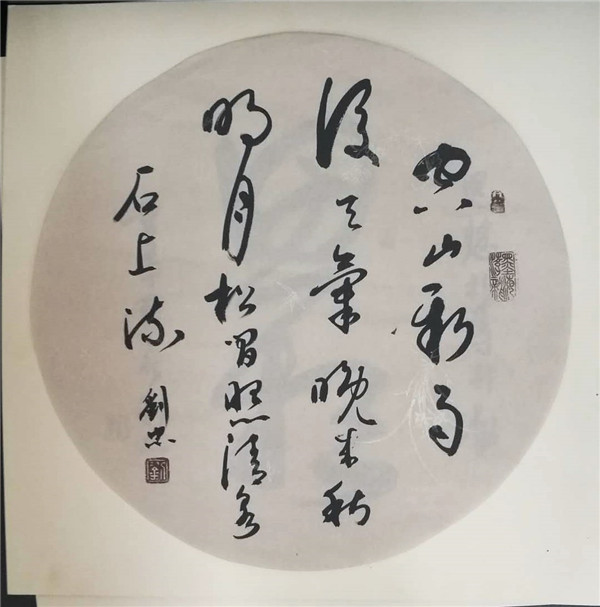 空山新雨
後天氣晚来秋
明月松間照清泉
石上流
劉忠
劉